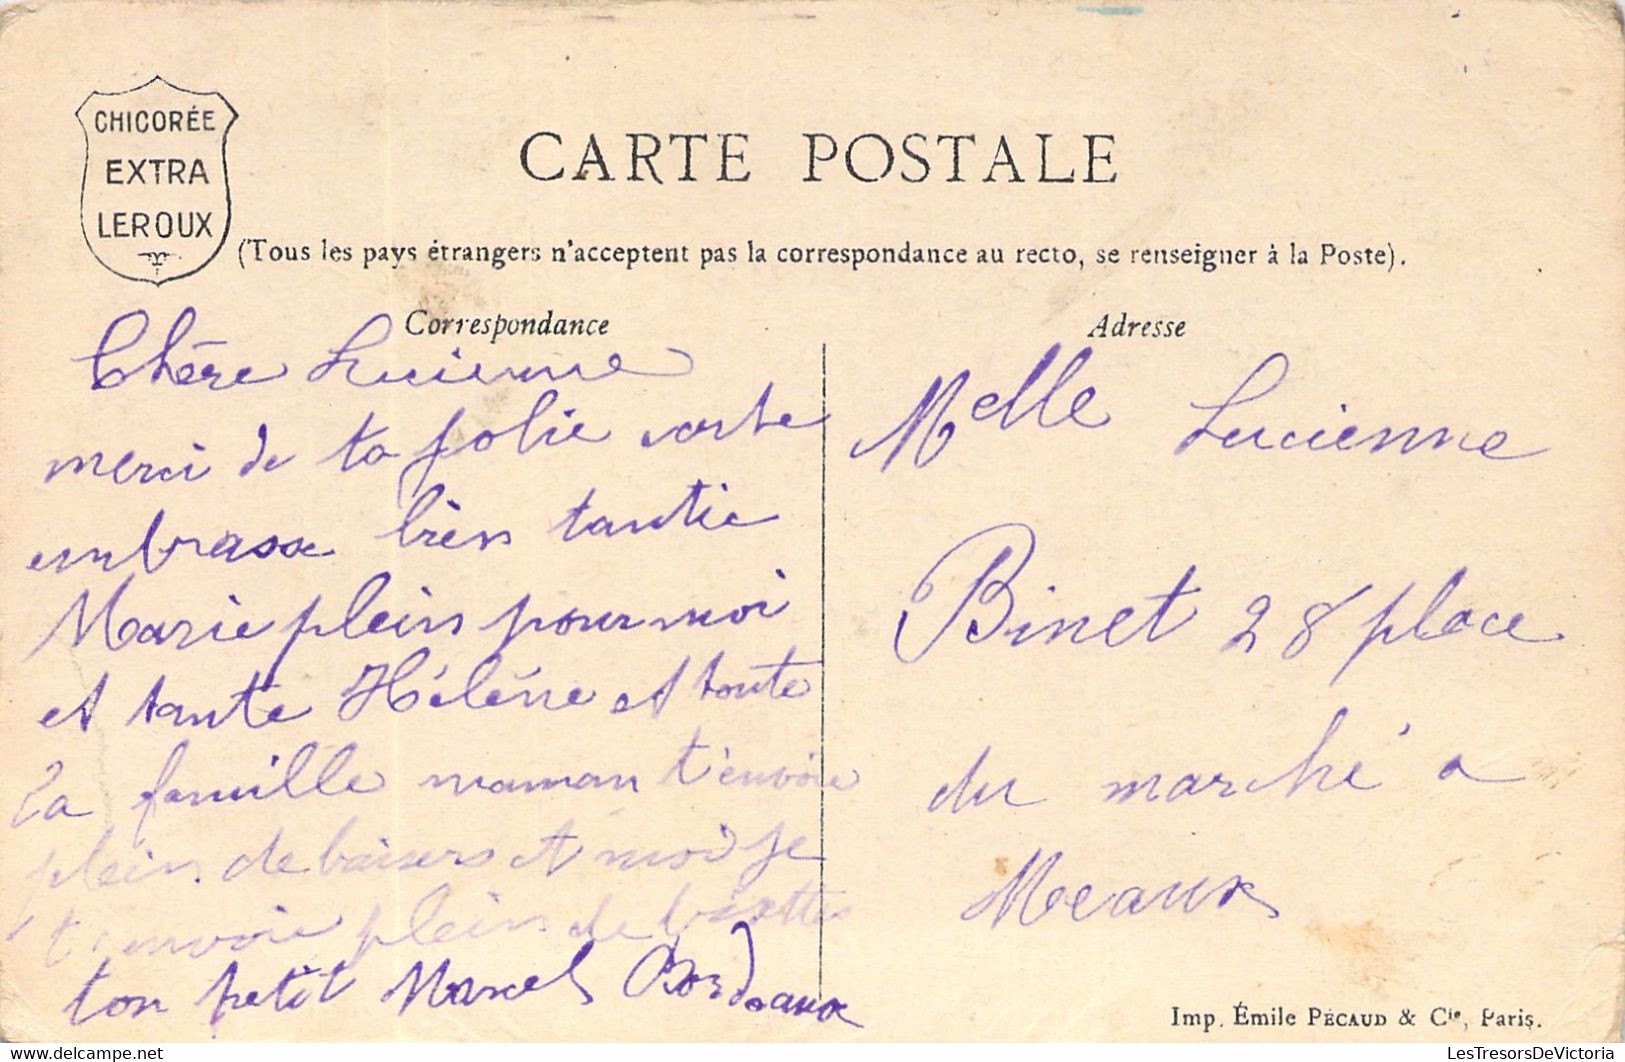 CHICORÉE
EXTRA
LEROUX
CARTE POSTALE
(Tous les pays étrangers n'acceptent pas la correspondance au recto, se renseigner à la Poste).
Correspondance
Chère Lucienne
merci de ta jolie carte
embrasse bien tantie
Marie plein pour moi
et tante Hélène et toute
la famille maman t'envoie
plein de baisers et moi je
t'envoie plein de bisettes
ton petit Marcel Bordeaux
Adresse
Melle Lucienne
Binet 28 place
du marché a
Meaux
Imp. Émile PÉCAUD & Cie, Paris.
LesTresorsDeVictoria